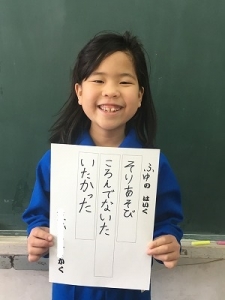 ふゆの はいく
そりあそび
ころんでないた
いたかった
かく